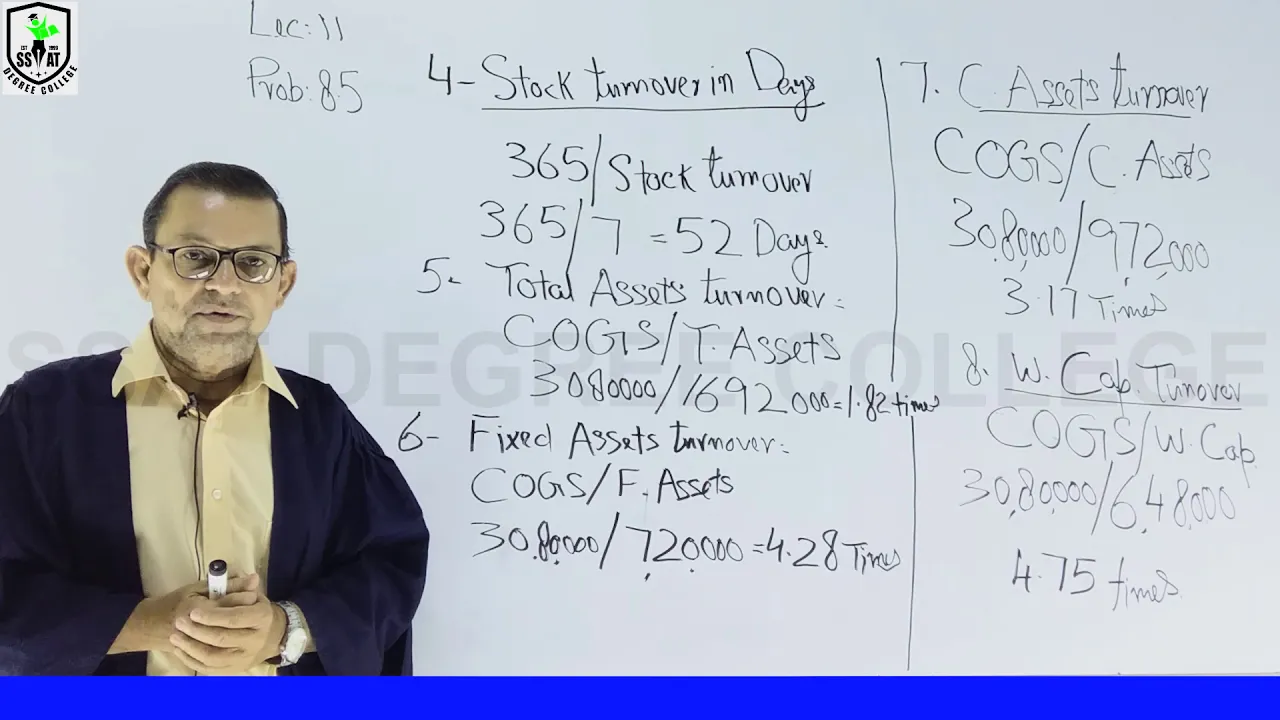 EST 1999
SSAT
DEGREE COLLEGE
Lec: 11
Prob: 8.5
4- Stock turnover in Days
365/Stock turnover
365/7 = 52 Days.
5- Total Assets turnover:
COGS/T. Assets
3080000/1692000=1.82 times
6- Fixed Assets turnover:
COGS/F. Assets
30,80,000/7,20,000=4.28 Times
7. C. Assets turnover
COGS/C. Assets
30,80,000/9,72,000
3.17 Times
8. W. Cap. Turnover
COGS/W. Cap.
30,80,000/6,48,000
4.75 times.
SSAT DEGREE COLLEGE